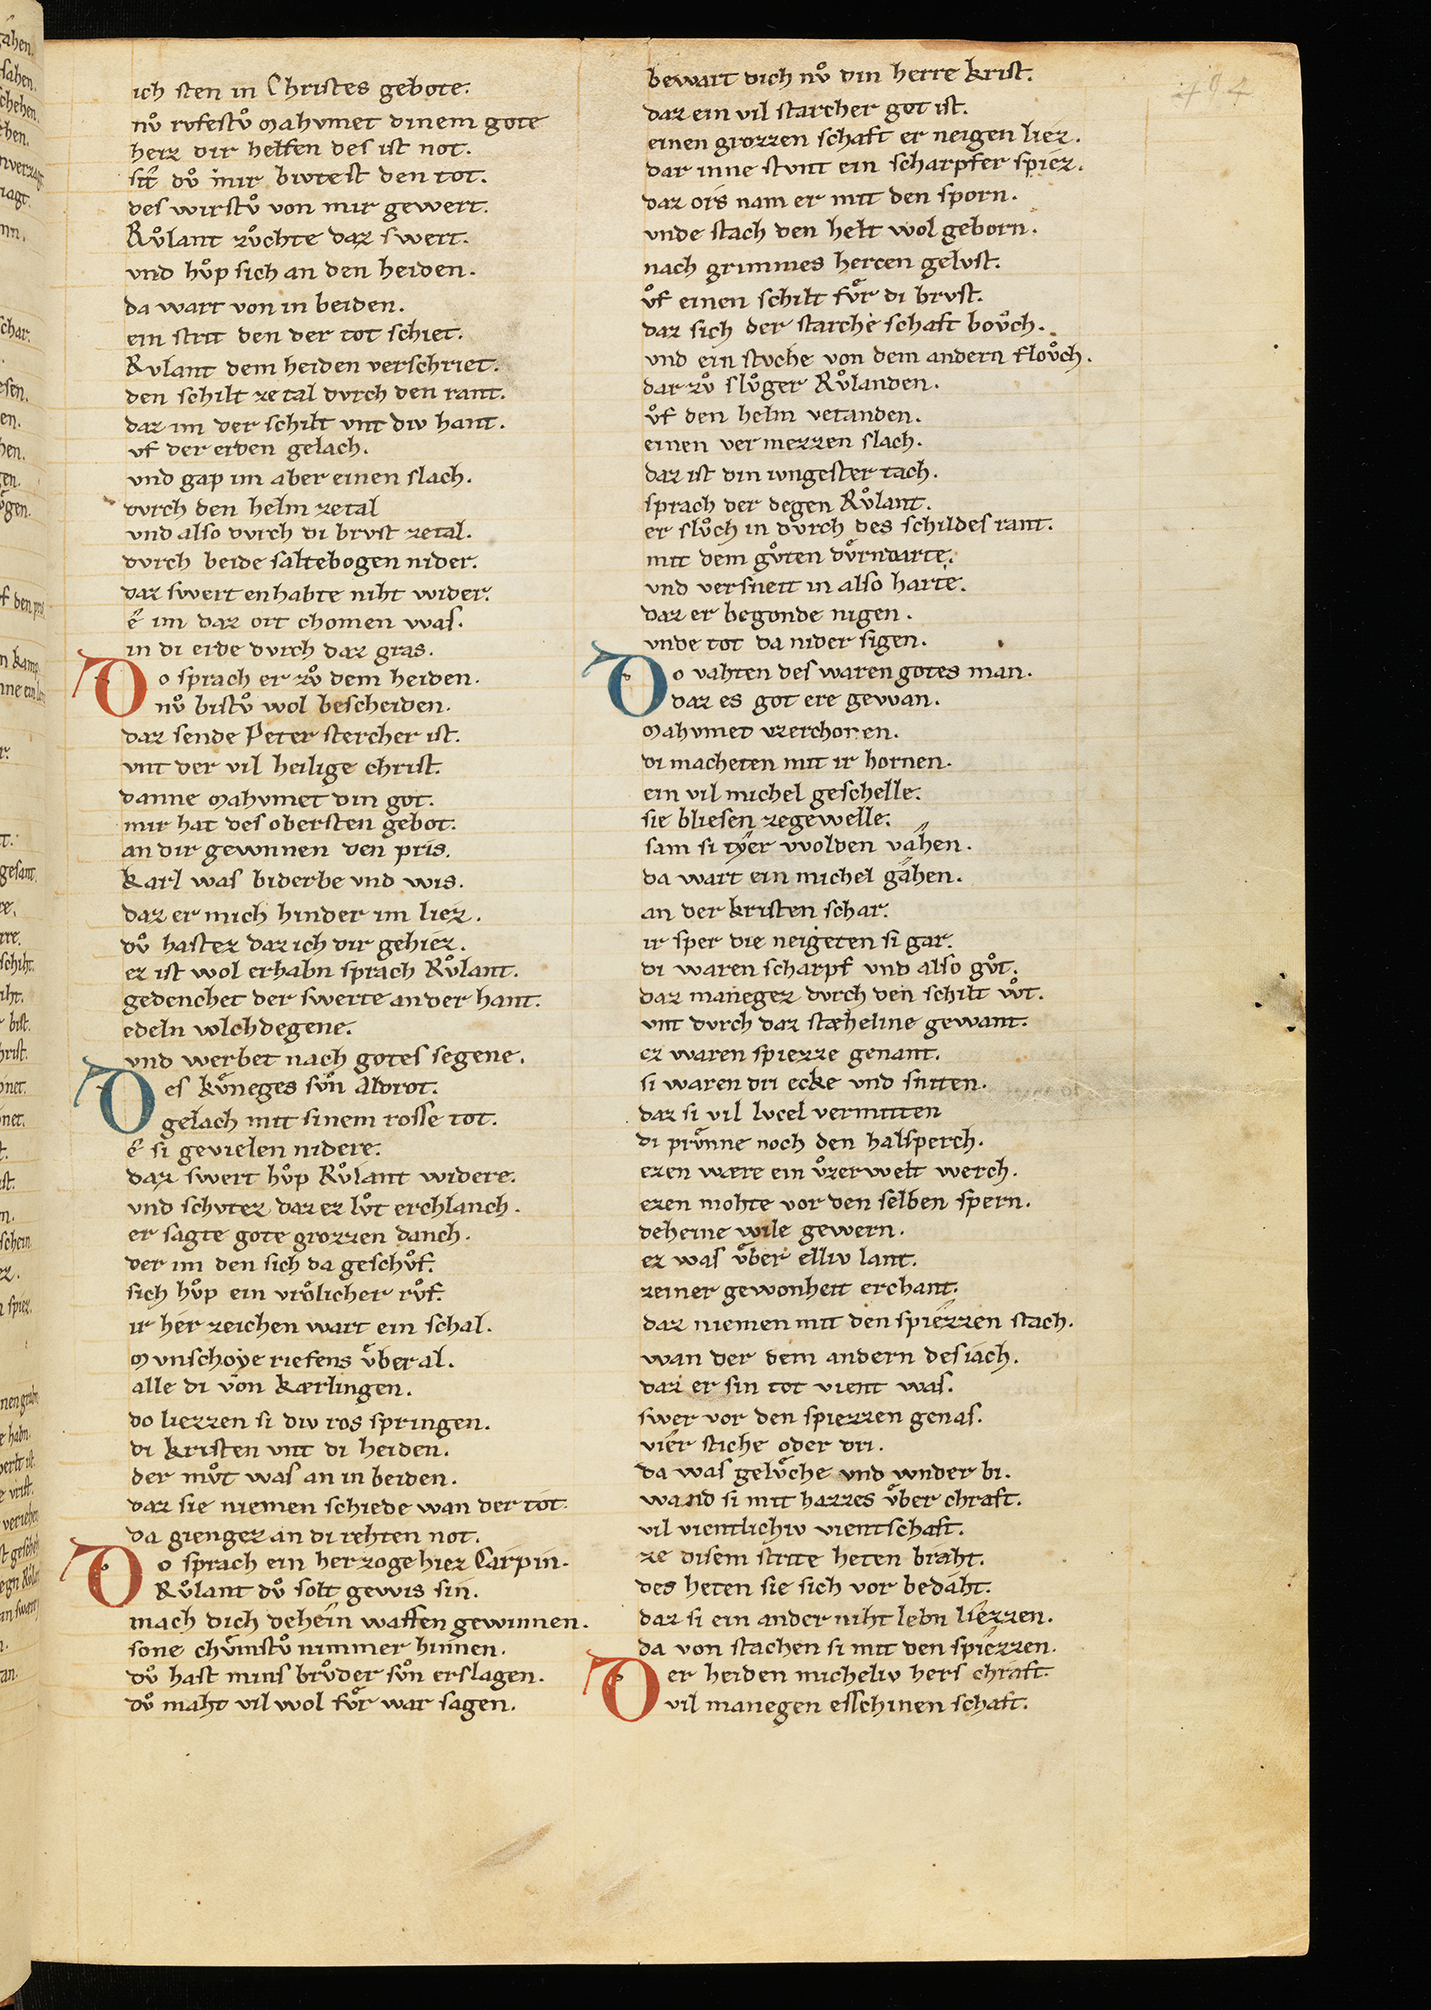 ich sten in Christes gebote.
nuͦ rvfestuͦ Mahvmet dinem gote
herz dir helfen des ist not.
sit duͦ mir bivtest den tot.
des wirstuͦ von mir gewert.
Ruͦlant zuͦchte daz swert.
vnd huͦp sich an den heiden.
da wart von in beiden.
ein strit den der tot schiet.
Rvlant dem heiden verschriet.
den schilt ze tal dvrch den rant.
daz im der schilt vnt div hant.
vf der erden gelach.
vnd gap im aber einen slach.
dvrch den helm zetal
vnd also dvrch di brvst zetal.
dvrch beide saltebogen nider.
daz swert enhabte niht wider.
ê im daz ort chomen was.
in di erde dvrch daz gras.
Do sprach er zuͦ dem heiden.
nuͦ bistuͦ wol bescheiden.
daz sende Peter stercher ist.
vnt der vil heilige christ.
danne Mahvmet din got.
mir hat des obersten gebot.
an dir gewnnen den pris.
Karl was biderbe vnd wis.
daz er mich hinder im liez.
duͦ hastez daz ich dir gehiez.
ez ist wol erhabn sprach Ruͦlant.
gedenchet der swerte an der hant.
edeln wlchdegene.
vnd werbet nach gotes segene.
Des kuͤneges suͦn Aldrot.
gelach mit sinem rosse tot.
ê si gevielen nidere.
daz swert huͦp Ruͦlant widere.
vnd schvtez daz ez luͦt erchlanch.
er sagte gote grozzen danch.
der im den sich da geschuͦf.
sich huͦp ein vroͤlicher ruͦf.
ir her zeichen wart ein schal.
Mvnschoye riefens uͤber al.
alle di von Kærlingen.
do liezzen si div ros springen.
di kristen vnt di heiden.
der muͦt was an in beiden.
daz sie niemen schiede wan der tot.
da giengez an di rehten not.
Do sprach ein herzoge hiez Carpin.
Ruͦlant duͦ solt gewis sin.
mach dich dehein waffen gewinnen.
sone chuͤmstuͦ nimmer hinnen.
duͦ hast mins bruͦder suͦn erslagen.
duͦ maht vil wol fuͤr war sagen.
bewart dich nuͦ din herre krist.
daz ein vil starcher got ist.
einen grozzen schaft er neigen liez.
dar inne stvnt ein scharpfer spiez.
daz ors nam er mit den sporn.
vnde stach den helt wol geborn.
nach grimmes hercen gelvst.
uͦf einen schilt fuͤr di brvst.
daz sich der starche schaft bouͦch.
vnd ein stvche von dem andern flouͦch.
dar zuͦ sluͦger Ruͦlanden.
uͦf den helm vetanden.
einen vermezzen slach.
daz ist din ivngester tach.
sprach der degen Ruͦlant.
er sluͦch in dvrch des schildes rant.
mit dem guͦten duͤrndarte.
vnd versneit in also harte.
daz er begonde nigen.
vnde tot da nider sigen.
Do vahten des waren gotes man.
daz es got ere gewan.
Mahvmed vzerchoren.
di macheten mit ir hornen.
ein vil michel geschelle.
sie bliesen zegewelle.
sam si tyer wolden vahen.
da wart ein michel gahen.
an der kristen schar.
ir sper die neigeten si gar.
di waren scharpf vnd also guͦt.
daz maneger dvrch den schilt wͦt.
vnt dvrch daz stæheline gewant.
ez waren spiezze genant.
si waren dri ecke vnd sniten.
daz si vil lvcel vermitten
di pruͤnne noch den halsperch.
ezen wære ein uͦzerwelt werch.
ezen mohte vor den selben spern.
deheine wile gewern.
ez was uͤber elliv lant.
zeiner gewonheit erchant.
daz niemen mit den spiezzen stach.
wan der dem andern des iach.
daz er sin tot vient was.
swer vor den spiezzen genas.
vier stiche oder dri.
da was geluͤche vnd wnder bi.
wand si mit hazzes uͤber chraft.
vil vientlichiv vientschaft.
ze disem strite heten braht.
des heten sie sich vor bedaht.
daz si ein ander niht lebn liezzen.
da von stachen si mit den spiezzen.
Der heiden micheliv hers chraft
vil manegen esschinen schaft.